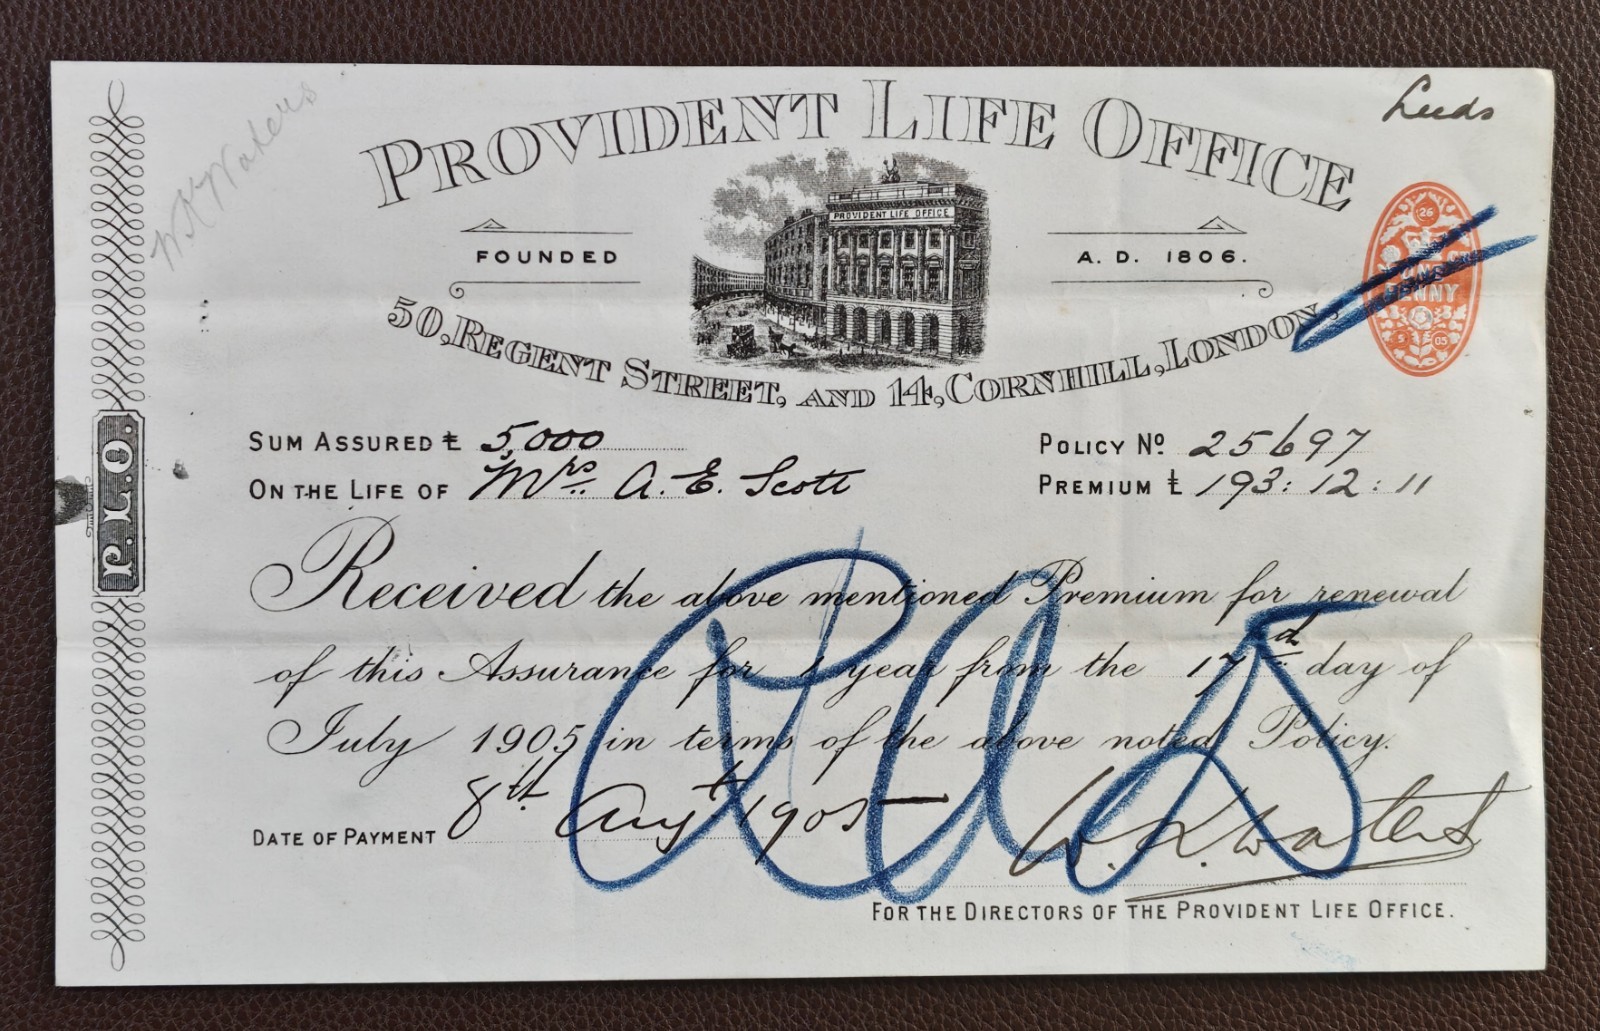 Leeds
W K Waters
PROVIDENT LIFE OFFICE
PROVIDENT LIFE OFFICE
FOUNDED A. D. 1806.
50, REGENT STREET, AND 14, CORNHILL, LONDON.
26
ONE
PENNY
5 05
P.L.O.
SUM ASSURED £ 5,000 POLICY No. 25697
ON THE LIFE OF Mrs. A. E. Scott PREMIUM £ 193:12:11
Received the above mentioned Premium for renewal
of this Assurance for 1 year from the 17d day of
July 1905 in terms of the above noted Policy.
DATE OF PAYMENT 8th. Augt 1905 W. K. Waters
FOR THE DIRECTORS OF THE PROVIDENT LIFE OFFICE.